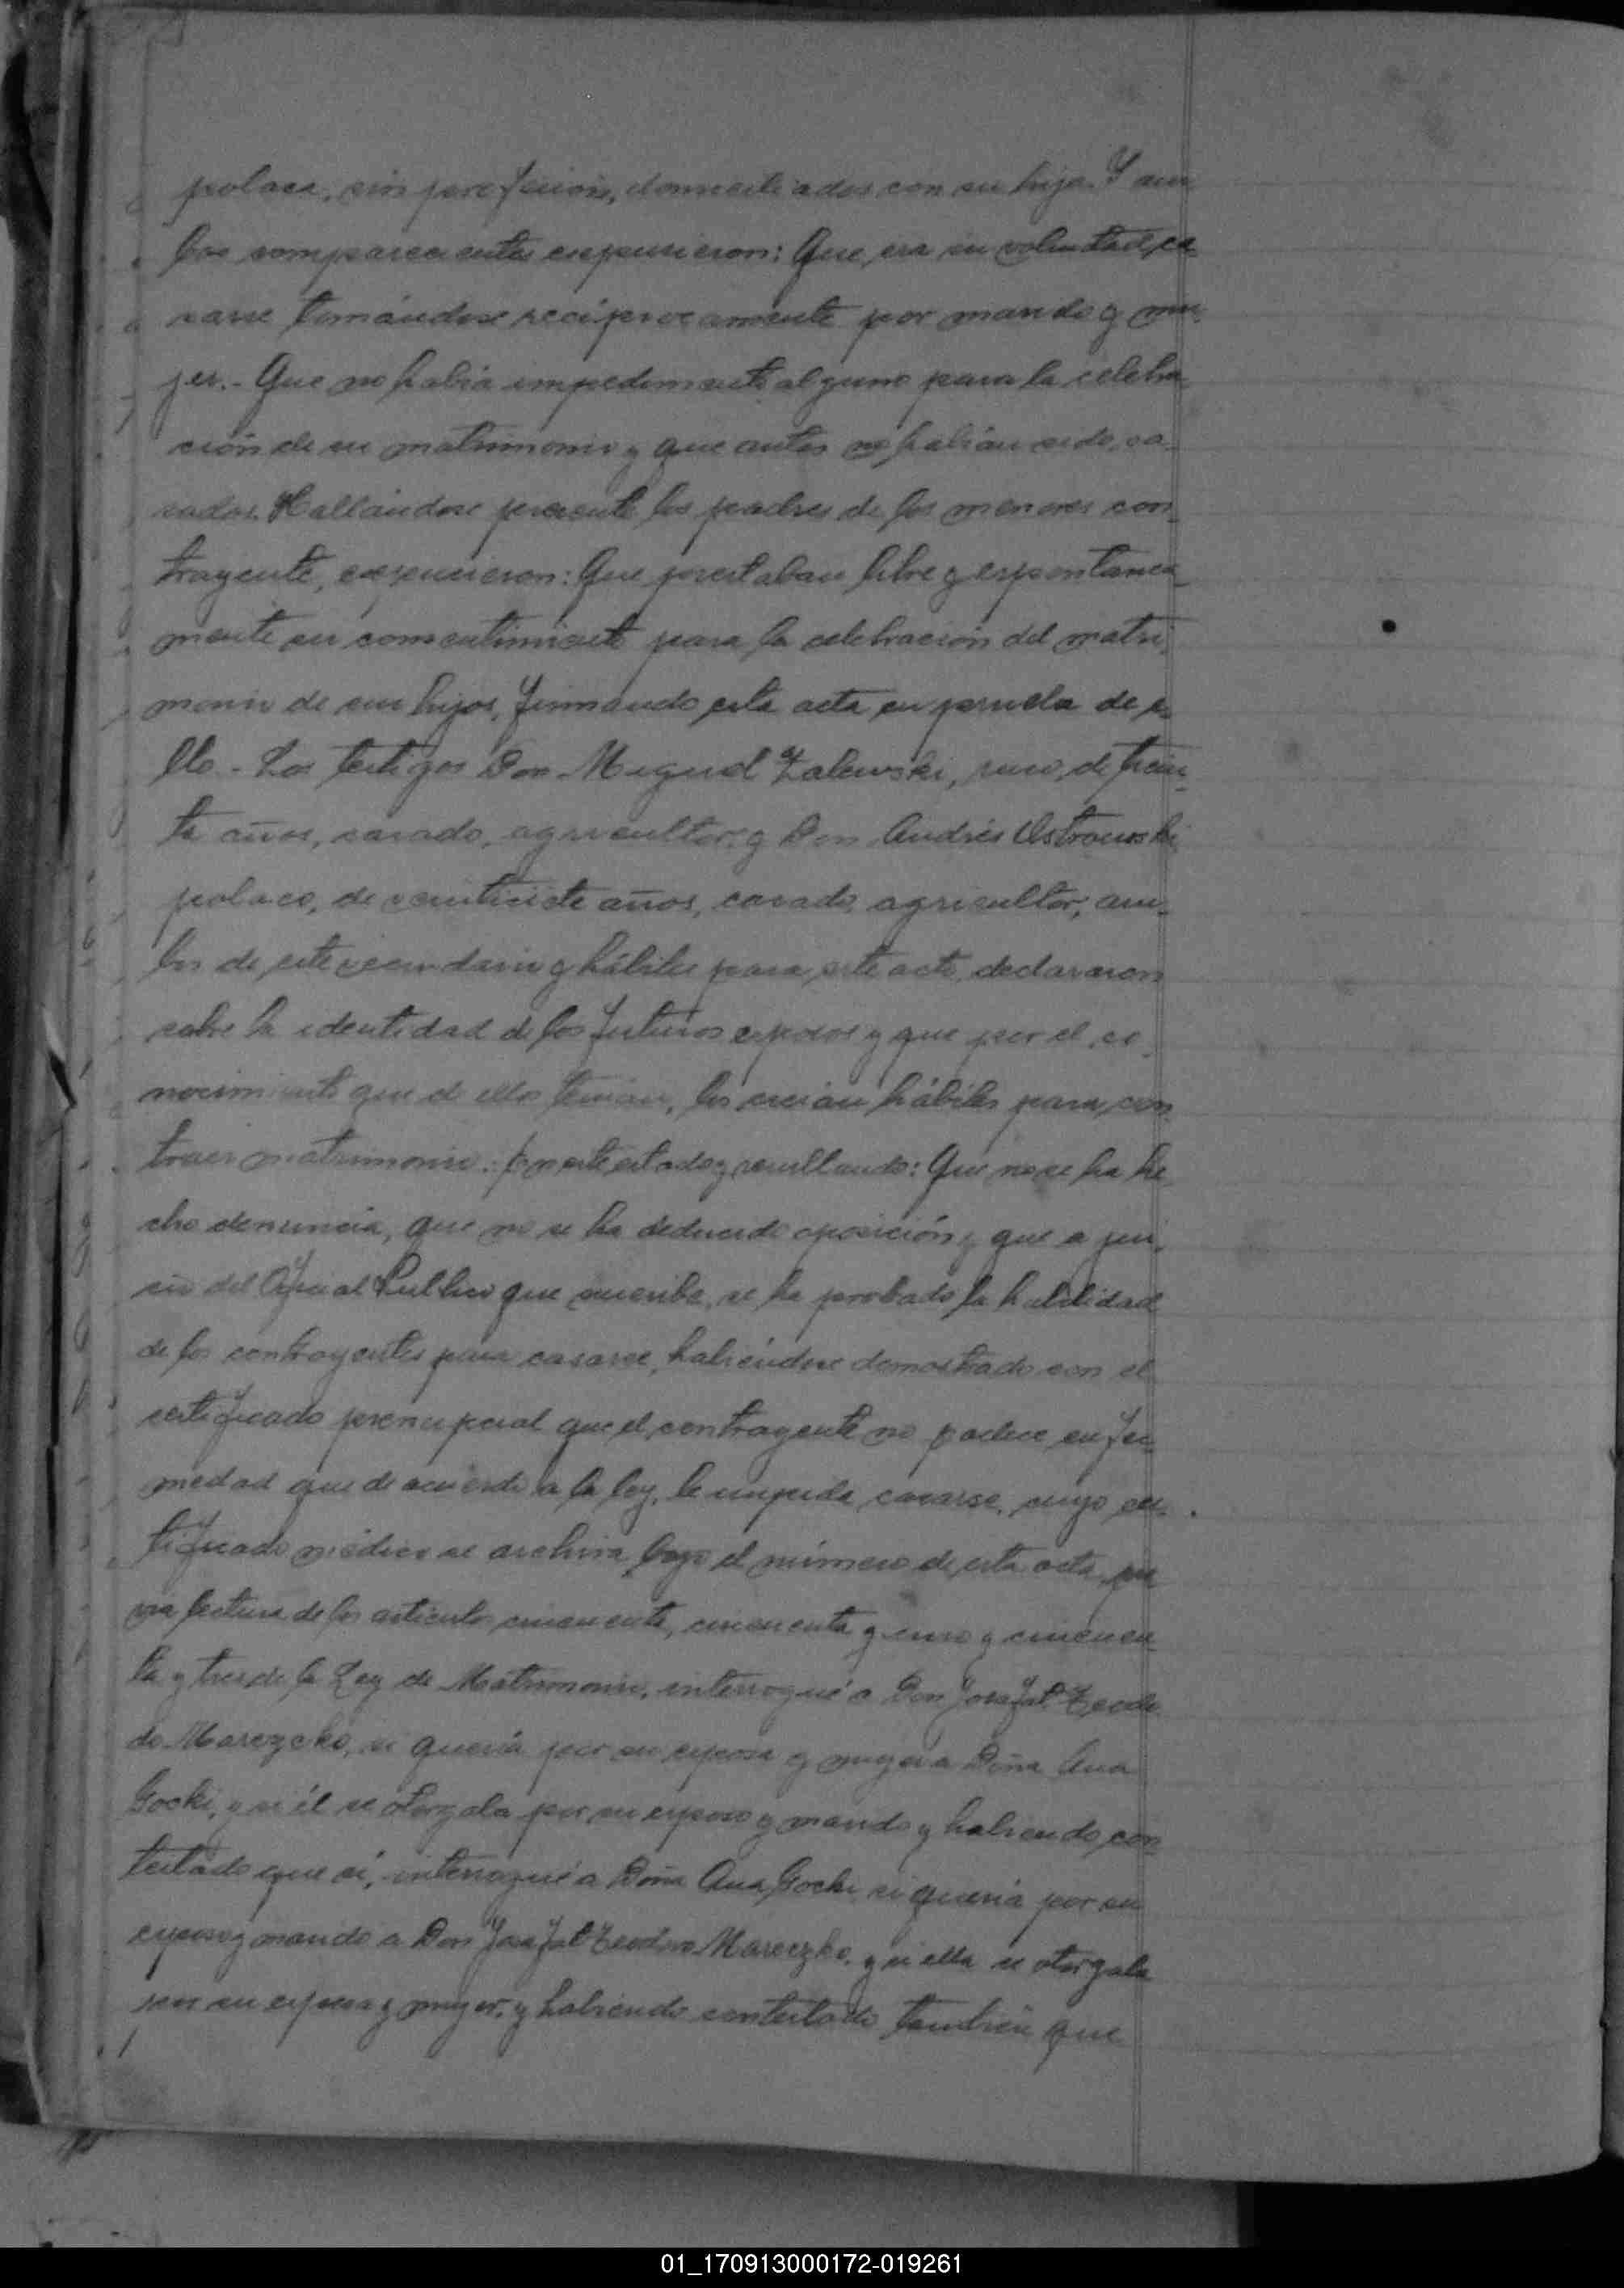 polaca, sin profesion, domiciliados con su hija. Y am
bos comparecientes expusieron: Que era su voluntad, ca
sarse tomándose recíprocamente por marido y mu
jer.- Que no había impedimento alguno para la celebra
ción de su matrimonio y que antes no habían sido, ca-
sados. Hallándose presente los padres de los menores con-
trayente, expusieron: Que prestaban libre y espontanea-
mente su consentimiento para la celebración del matri
monio de sus hijos, firmando esta acta en prueba de e-
llo - Los testigos Don Miguel Zalewski, ruso, de trein-
ta años, casado, agricultor, y Don Andrés Ostrowski
polaco, de veintisiete años, casado, agricultor, am-
bos de este vecindario y hábiles para este acto, declararon
sobre la identidad de los futuros esposos y que por el co-
nocimiento que de ello tenian, los creian hábiles para con
traer matrimonio. En este estado y resultando: Que no se ha he
cho denuncia, que no se ha deducido oposición y que a jui-
cio del Oficial Publico que suscribe, se ha probado la habilidad
de los contrayentes para casarse, habiéndose demostrado con el
certificado prenupcial que el contrayente no padece enfer
medad que de acuerdo a la ley, le impida casarse, cuyo cer-
tificado médico se archiva bajo el número de esta acta, pre
via lectura de los articulos cincuenta, cincuenta y uno y cincuen
ta y tres de la Ley de Matrimonio, interrogué a Don Josafat Teodo
do Mareczko, si quería por su esposa y mujer a Doña Ana
Gocki, y si él se otorgaba por su esposo y marido y habiendo con
testado que sí, interrogué a Doña Ana Gocki si quería por su
esposo y marido a Don Josafat Teodoro Mareczko, y si ella se otorgaba
por su esposa y mujer, y habiendo contestado también que
01_170913000172-019261